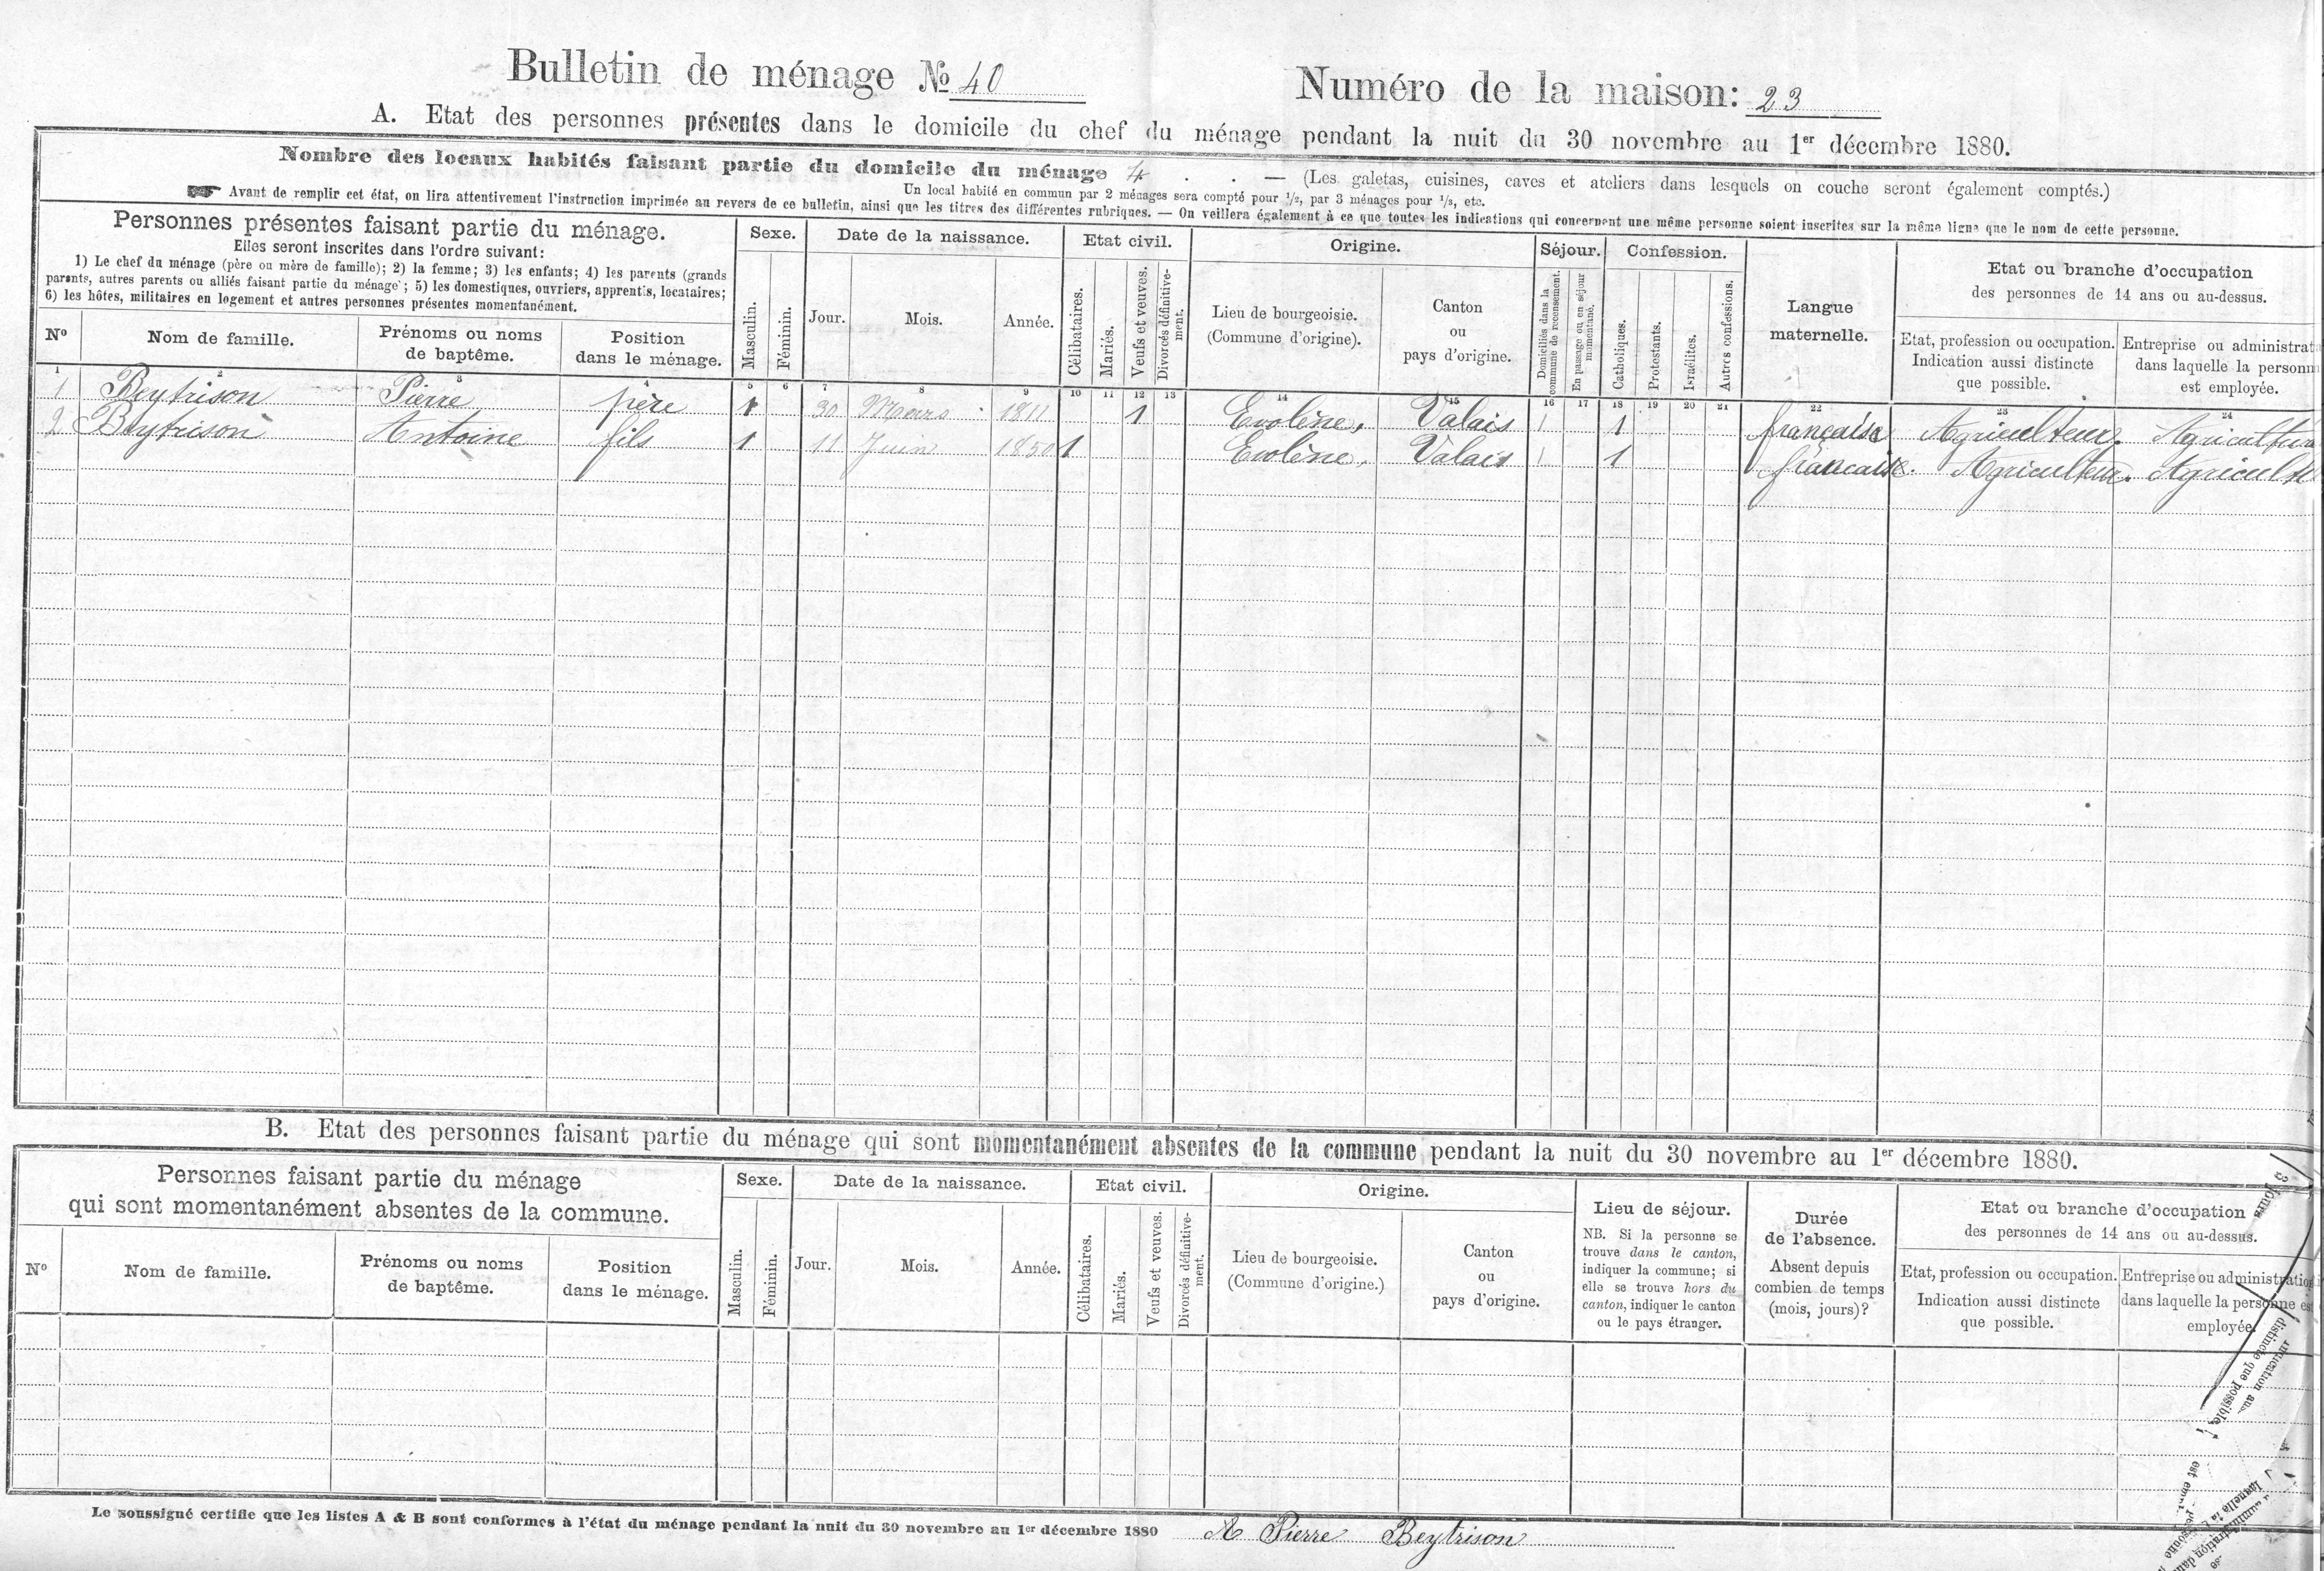 Bulletin de ménage № 40
Numéro de la maison: 23
A. Etat des personnes présentes dans le domicile du chef du ménage pendant la nuit du 30 novembre au 1er décembre 1880.
Nombre des locaux habités faisant partie du domicile du ménage 4 . . — (Les galetas, cuisines, caves et ateliers dans lesquels on couche seront également comptés.)
Un local habité en commun par 2 ménages sera compté pour 1/2, par 3 ménages pour 1/3, etc.
Avant de remplir cet état, on lira attentivement l'instruction imprimée au revers de ce bulletin, ainsi que les titres des différentes rubriques. — On veillera également à ce que toutes les indications qui concernent une même personne soient inscrites sur la même ligne que le nom de cette personne.
Personnes présentes faisant partie du ménage.
Elles seront inscrites dans l'ordre suivant:
1) Le chef du ménage (père ou mère de famille); 2) la femme; 3) les enfants; 4) les parents (grands
parents, autres parents ou alliés faisant partie du ménage); 5) les domestiques, ouvriers, apprentis, locataires;
6) les hôtes, militaires en logement et autres personnes présentes momentanément.
No
Nom de famille.
Prénoms ou noms
de baptême.
Position
dans le ménage.
Sexe.
Masculin.
Féminin.
Date de la naissance.
Jour.
Mois.
Année.
Etat civil.
Célibataires.
Mariés.
Veufs et veuves.
Divorcés définitive-
ment.
Origine.
Lieu de bourgeoisie.
(Commune d'origine).
Canton
ou
pays d'origine.
Séjour.
Domiciliés dans la
commune de recensement.
En passage ou en séjour
momentané.
Confession.
Catholiques.
Protestants.
Israélites.
Autres confessions.
Langue
maternelle.
Etat ou branche d'occupation
des personnes de 14 ans ou au-dessus.
Etat, profession ou occupation.
Indication aussi distincte
que possible.
Entreprise ou administrat
dans laquelle la personn
est employée.
1 2 3 4 5 6 7 8 9 10 11 12 13 14 15 16 17 18 19 20 21 22 23 24
1 Beytrison Pierre père 1 30 Mars 1811 1 Evolène, Valais 1 1 française Agriculteur. Agricultur
2 Beytrison Antoine fils 1 11 Juin 1850 1 Evolène, Valais 1 1 française. Agriculteur. Agricult
B. Etat des personnes faisant partie du ménage qui sont momentanément absentes de la commune pendant la nuit du 30 novembre au 1er décembre 1880.
Personnes faisant partie du ménage
qui sont momentanément absentes de la commune.
No
Nom de famille.
Prénoms ou noms
de baptême.
Position
dans le ménage.
Sexe.
Masculin.
Féminin.
Date de la naissance.
Jour.
Mois.
Année.
Etat civil.
Célibataires.
Mariés.
Veufs et veuves.
Divorcés définitive-
ment.
Origine.
Lieu de bourgeoisie.
(Commune d'origine.)
Canton
ou
pays d'origine.
Lieu de séjour.
NB. Si la personne se
trouve dans le canton,
indiquer la commune; si
elle se trouve hors du
canton, indiquer le canton
ou le pays étranger.
Durée
de l'absence.
Absent depuis
combien de temps
(mois, jours)?
Etat ou branche d'occupation
des personnes de 14 ans ou au-dessus.
Etat, profession ou occupation.
Indication aussi distincte
que possible.
Entreprise ou administration
dans laquelle la personne est
employée.
3 jours
distincte que possible
Le soussigné certifie que les listes A & B sont conformes à l'état du ménage pendant la nuit du 30 novembre au 1er décembre 1880
Pierre Beytrison